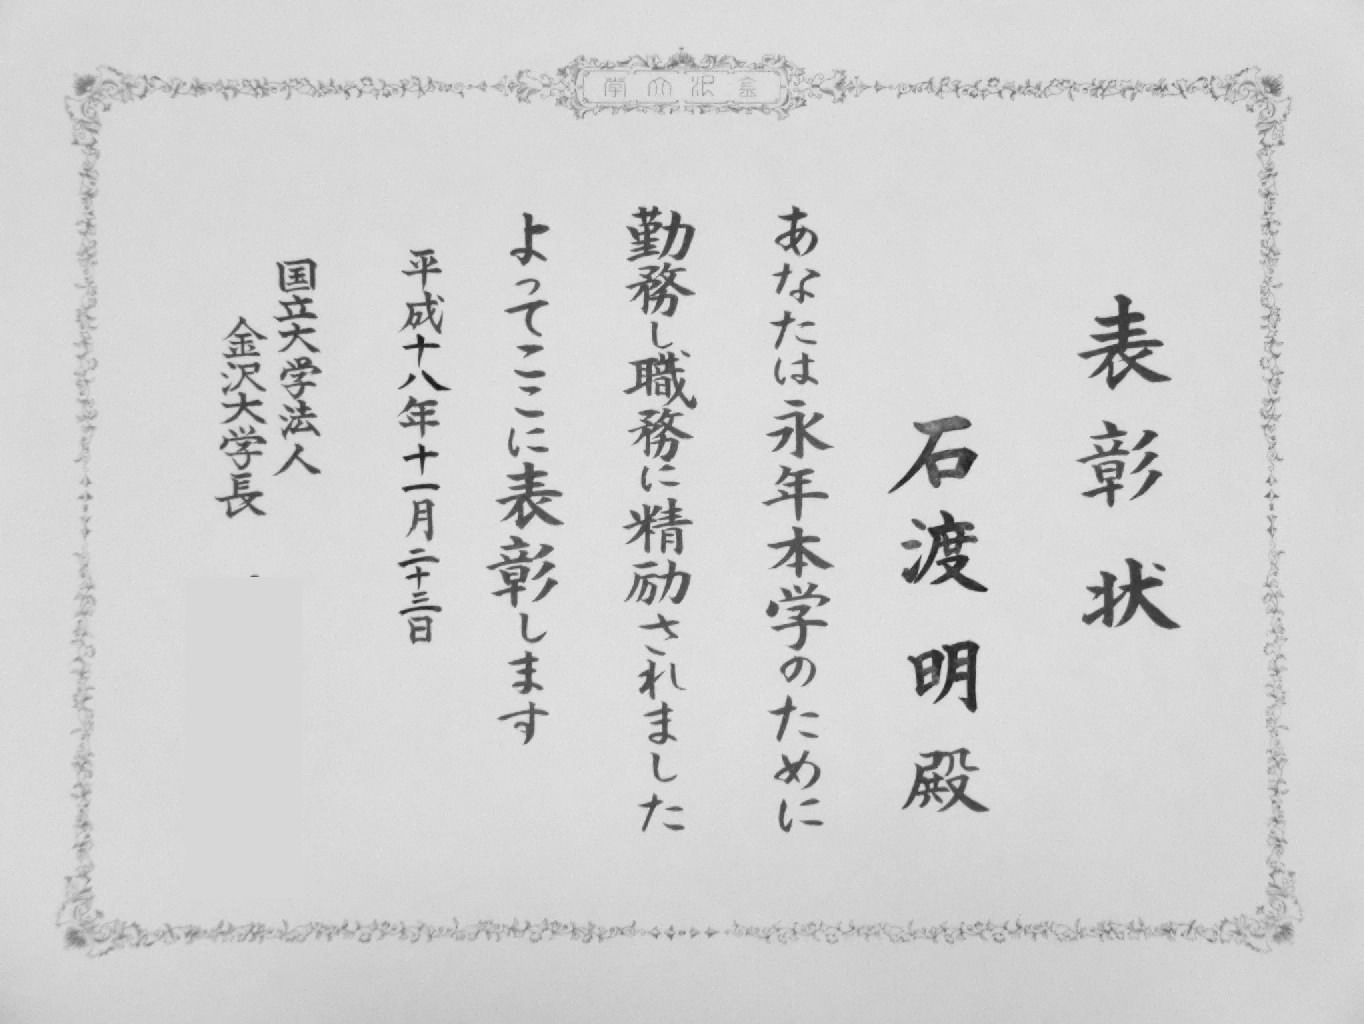 金沢大学
表彰状
石渡明殿
あなたは永年本学のために
勤務し職務に精励されました
よってここに表彰します
平成十八年十一月二十三日
国立大学法人
金沢大学長